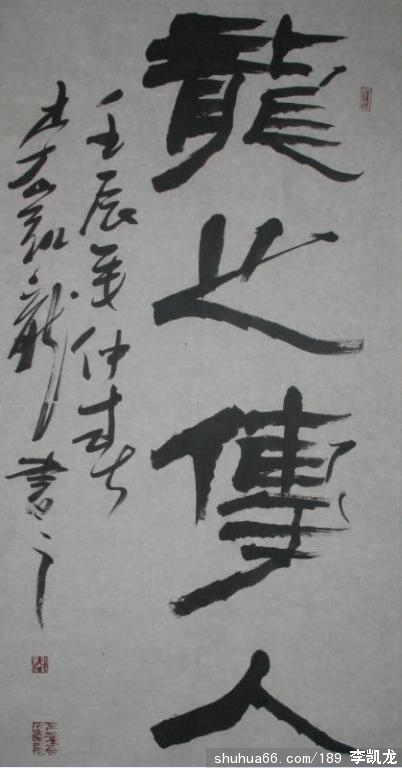 龍之傳人
壬辰年仲春
李凯龍書之
shuhua66.com/189 李凯龙